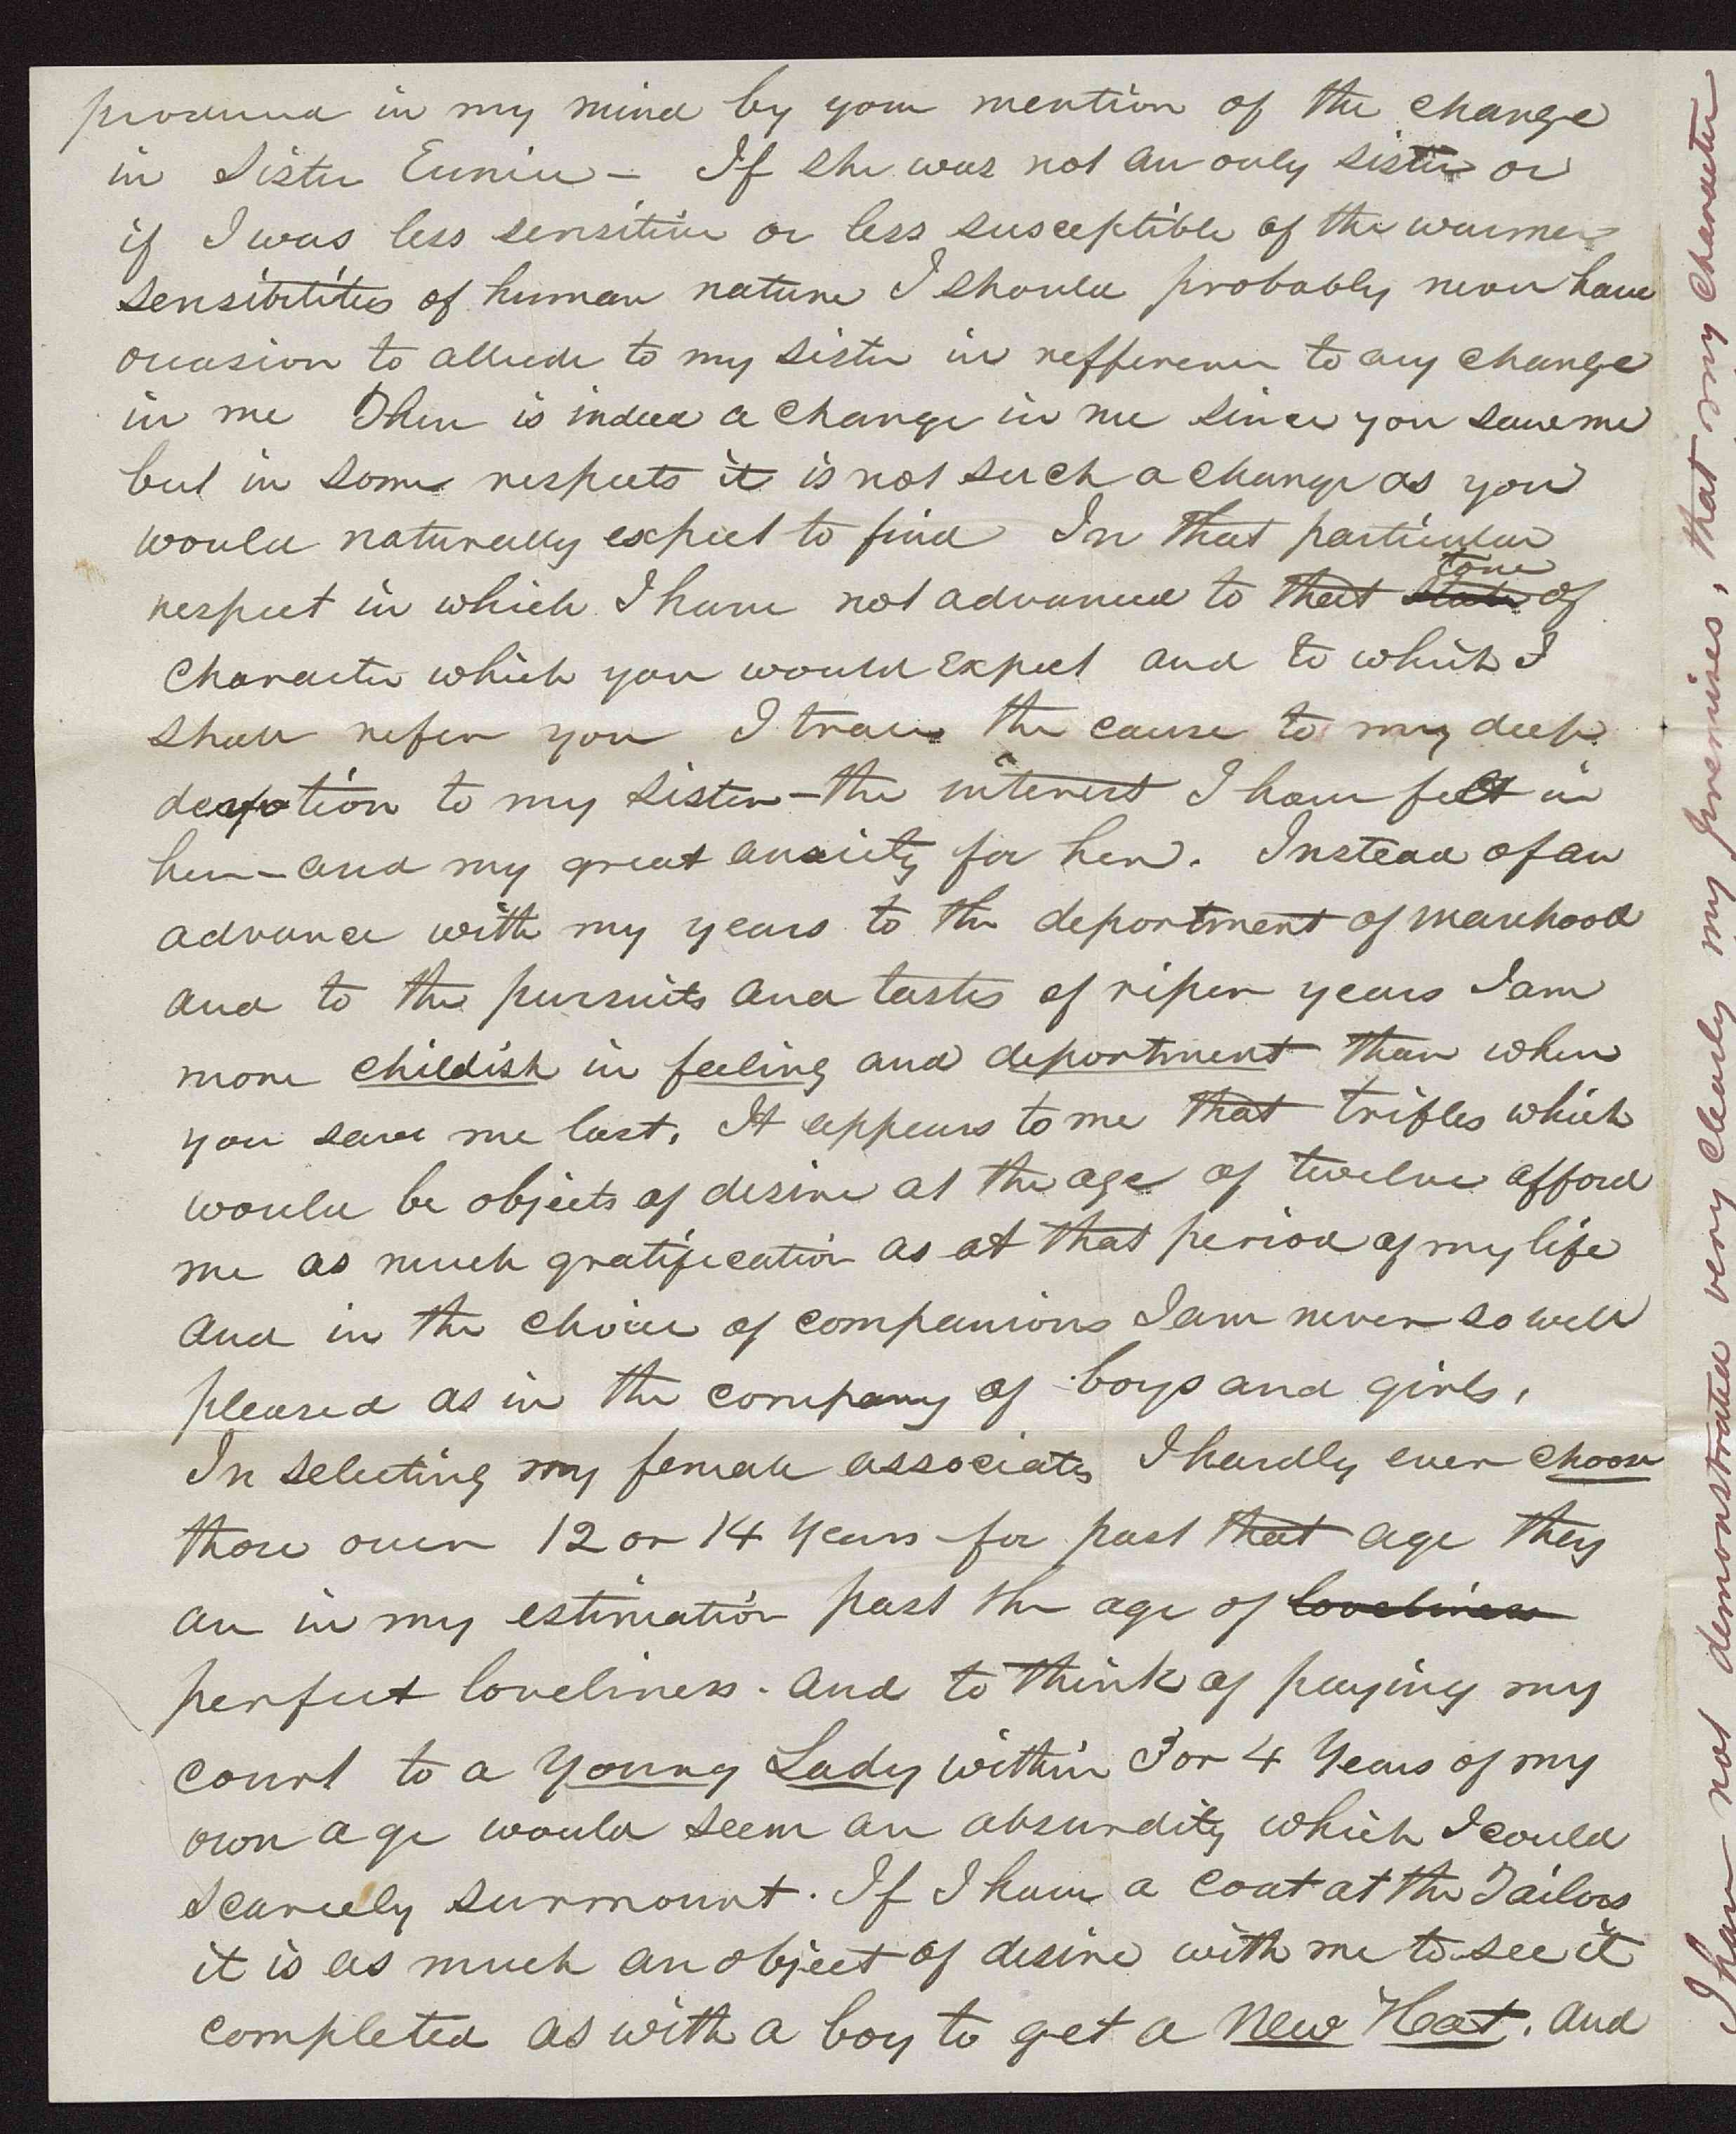 produced in my mind by your mention of the change
in Sister Eunice – If she was not an only sister or
if I was less sensitive or less susceptible of the warmer
sensibilities of human nature I should probably never have
occasion to allude to my sister in refference to any change
in me There is indeed a change in me since you saw me
but in some respects it is not such a change as you
would naturally expect to find In that particular
respect in which I have not advanced to that state tone of
character which you would expect and to which I
shall refer you I trace the cause to my deep
devotion to my sister – the interest I have felt in
her – and my great anxiety for her. Instead of an
advance with my years to the deportment of manhood
and to the pursuits and tastes of riper years I am
more childish in feeling and deportment than when
you saw me last. It appears to me that trifles which
would be objects of desire at the age of twelve afford
me as much gratification as at that period of my life
and in the choice of companions I am never so well
pleased as in the company of boys and girls.
In selecting my female associates I hardly ever choose
those over 12 or 14 years – for past that age they
are in my estimation past the age of loveliness
perfect loveliness. And to think of paying my
court to a Young Lady within 3 or 4 Years of my
own age would seem an absurdity which I could
scarcely surmount. If I have a coat at the Tailors
it is as much an object of desire with me to see it
completed as with a boy to get a New Hat. And
I have not demonstrated very clearly my premises, that my character